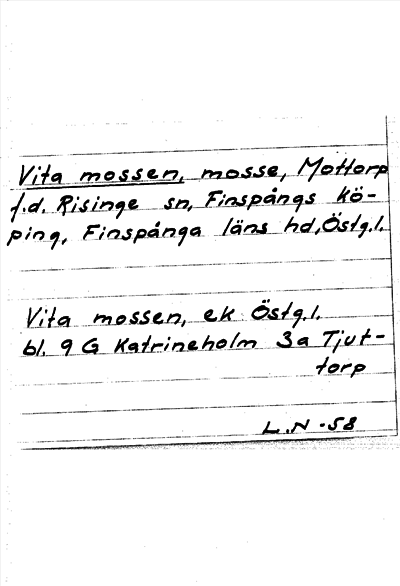 Vita mossen, mosse, Mottorp
f.d. Risinge sn, Finspångs kö-
ping, Finspånga läns hd, Östg.l.
Vita mossen, ek Östg.l.
bl. 9 G Katrineholm 3a Tjut-
torp
L.N -58